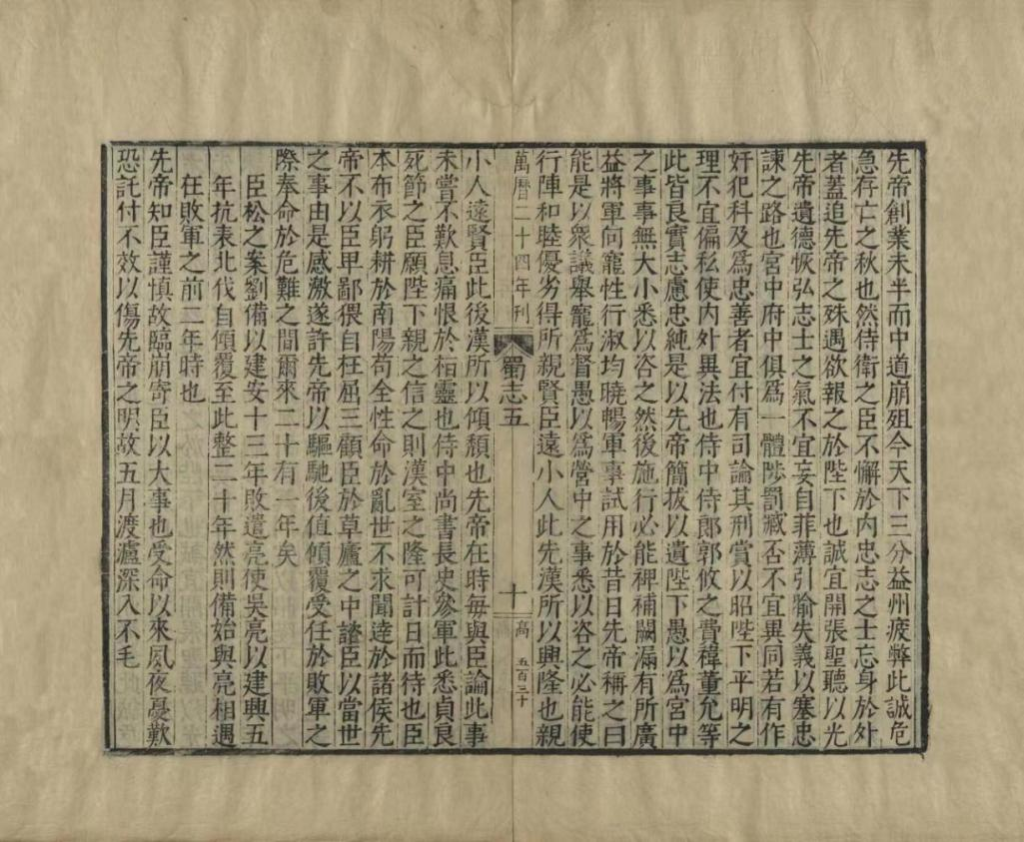 先帝創業未半而中道崩殂今天下三分益州疲弊此誠危
急存亡之秋也然侍衛之臣不懈於內忠志之士忘身於外
者蓋追先帝之殊遇欲報之於陛下也誠宜開張聖聽以光
先帝遺德恢弘志士之氣不宜妄自菲薄引喻失義以塞忠
諫之路也宮中府中俱爲一體陟罰臧否不宜異同若有作
奸犯科及爲忠善者宜付有司論其刑賞以昭陛下平明之
理不宜偏私使內外異法也侍中侍郎郭攸之費禕董允等
此皆良實志慮忠純是以先帝簡拔以遺陛下愚以爲宮中
之事事無大小悉以咨之然後施行必能裨補闕漏有所廣
益將軍向寵性行淑均曉暢軍事試用於昔日先帝稱之曰
能是以衆議舉寵爲督愚以爲營中之事悉以咨之必能使
行陣和睦優劣得所親賢臣遠小人此先漢所以興隆也親
萬曆二十四年刊
蜀志五
十
高 五百三十
小人遠賢臣此後漢所以傾頹也先帝在時每與臣論此事
未嘗不歎息痛恨於桓靈也侍中尚書長史參軍此悉貞良
死節之臣願陛下親之信之則漢室之隆可計日而待也臣
本布衣躬耕於南陽苟全性命於亂世不求聞達於諸侯先
帝不以臣卑鄙猥自枉屈三顧臣於草廬之中諮臣以當世
之事由是感激遂許先帝以驅馳後值傾覆受任於敗軍之
際奉命於危難之間爾來二十有一年矣
臣松之案劉備以建安十三年敗遣亮使吳亮以建興五
年抗表北伐自傾覆至此整二十年然則備始與亮相遇
在敗軍之前二年時也
先帝知臣謹慎故臨崩寄臣以大事也受命以來夙夜憂歎
恐託付不效以傷先帝之明故五月渡瀘深入不毛